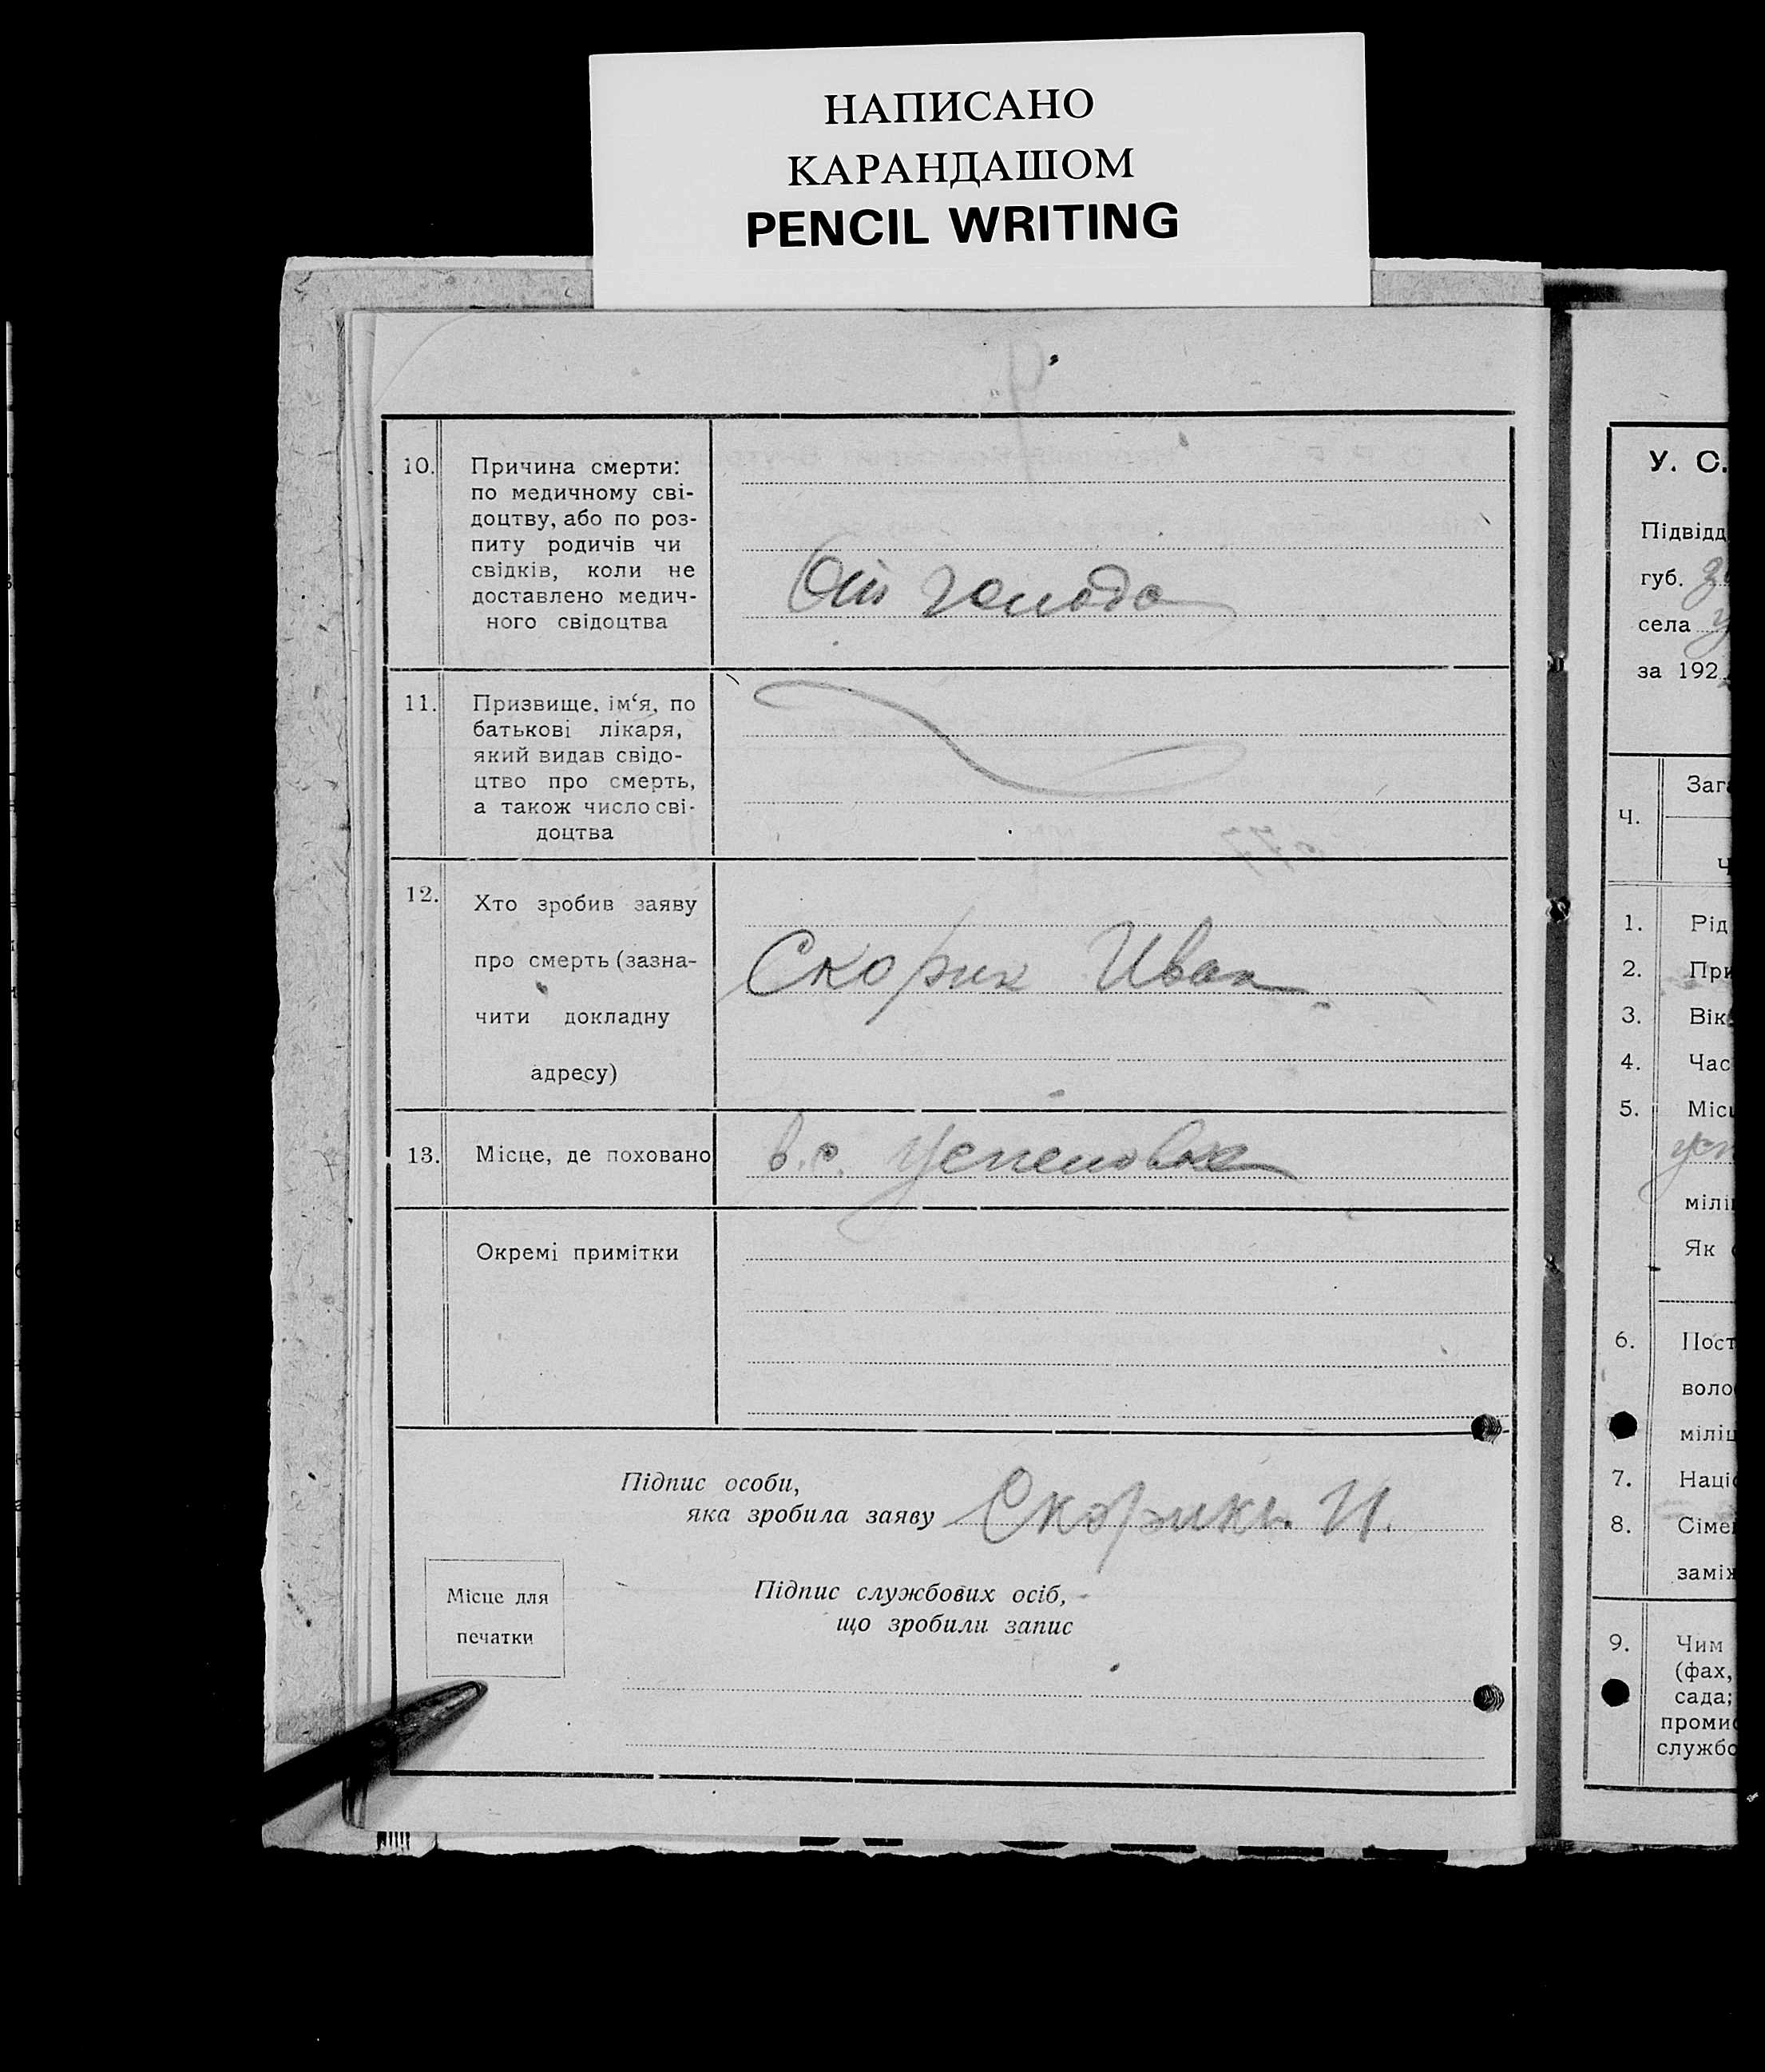 НАПИСАНО
КАРАНДАШОМ
PENCIL WRITING
10.
Причина смерти:
по медичному сві-
доцтву, або по роз-
питу родичів чи
свідків, коли не
доставлено медич-
ного свідоцтва
От голода
11.
Призвище, ім‘я, по
батькові лікаря,
який видав свідо-
цтво про смерть,
а також число сві-
доцтва
12.
Хто зробив заяву
про смерть (зазна-
чити докладну
адресу)
Скорик Иван
13.
Місце, де поховано
в. с. Успеновка
Окремі примітки
Підпис особи,
яка зробила заяву Скорикъ. И.
Місце для
печатки
Підпис службових осіб,
що зробили запис
У. С.
Підвідд
губ.
села
за 192
Ч.
Зага
1. Рід
2. При
3. Вік
4. Час
5. Місц
усп
міліц
Як
6. Пост
воло
міліц
7. Націо
8. Сімей
заміж
9. Чим
(фах,
сада;
промис
службо